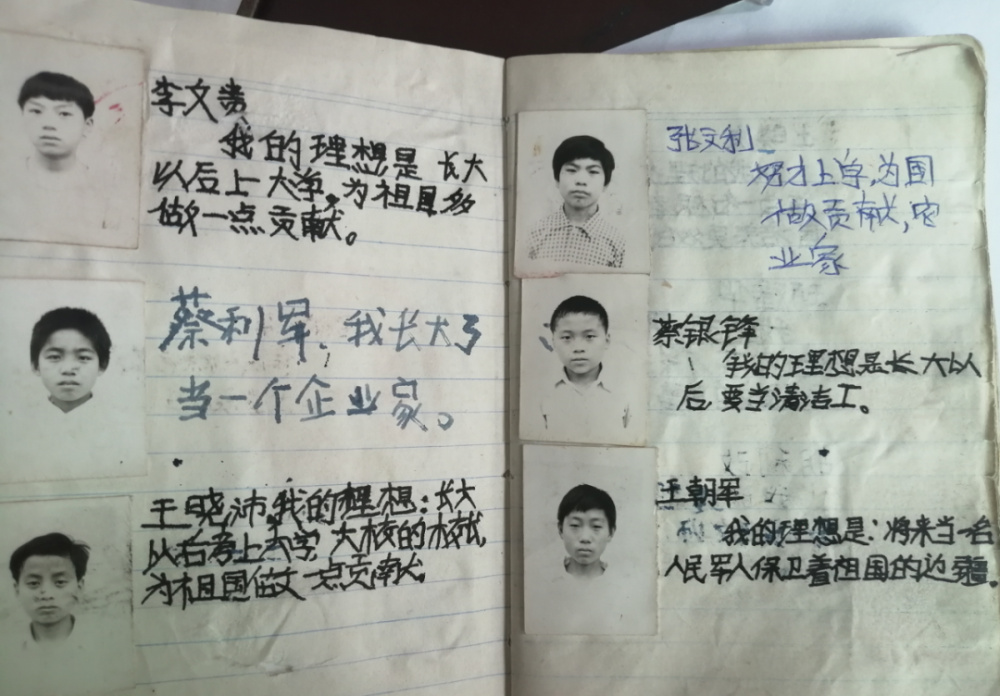 李文贵
我的理想是 长大
以后上大学,为祖国多
做一点贡献。
蔡利军,我长大了
当一个企业家。
王晓沛,我的理想:长大
以后考上大学 大校的校长
为祖国做文一点贡献
张文利
努才上学,为国
做贡献,它
业家
蔡银锋
我的理想是长大以
后,要当清洁工。
王朝军
我的理想是:将来当一名
人民军人保卫着祖国的边疆.